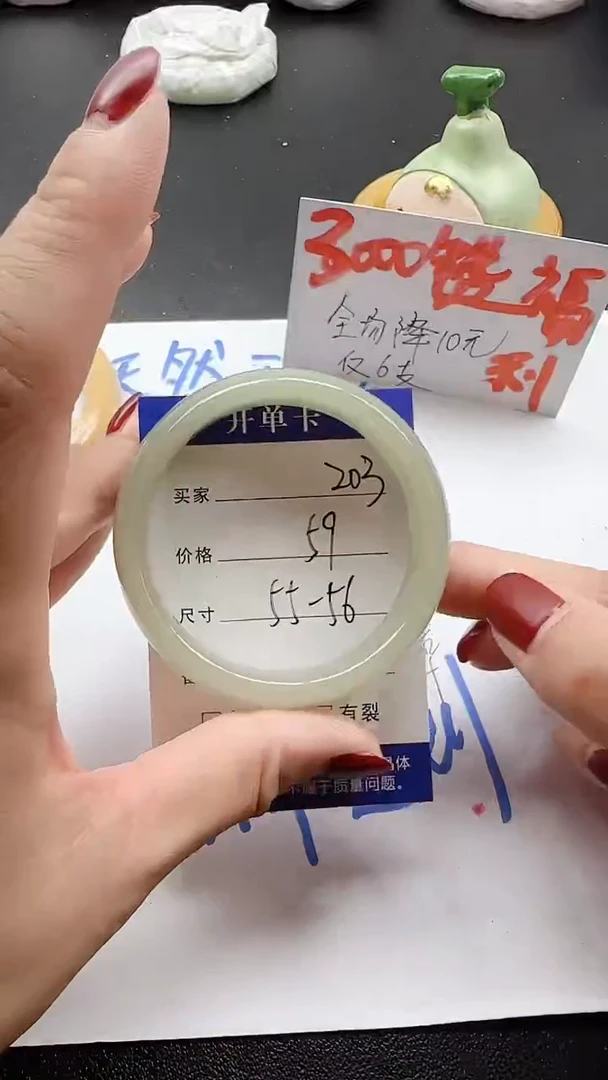 3000链福利
全场降10元
仅6支
天然
开单卡
买家 203
价格 59
尺寸 55-56
有裂
体
不属于质量问题。